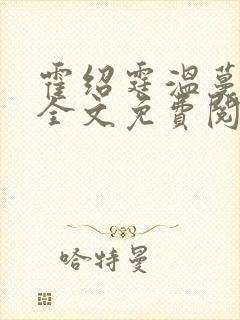 霍绍霆温蔓
全文免费阅
哈特曼